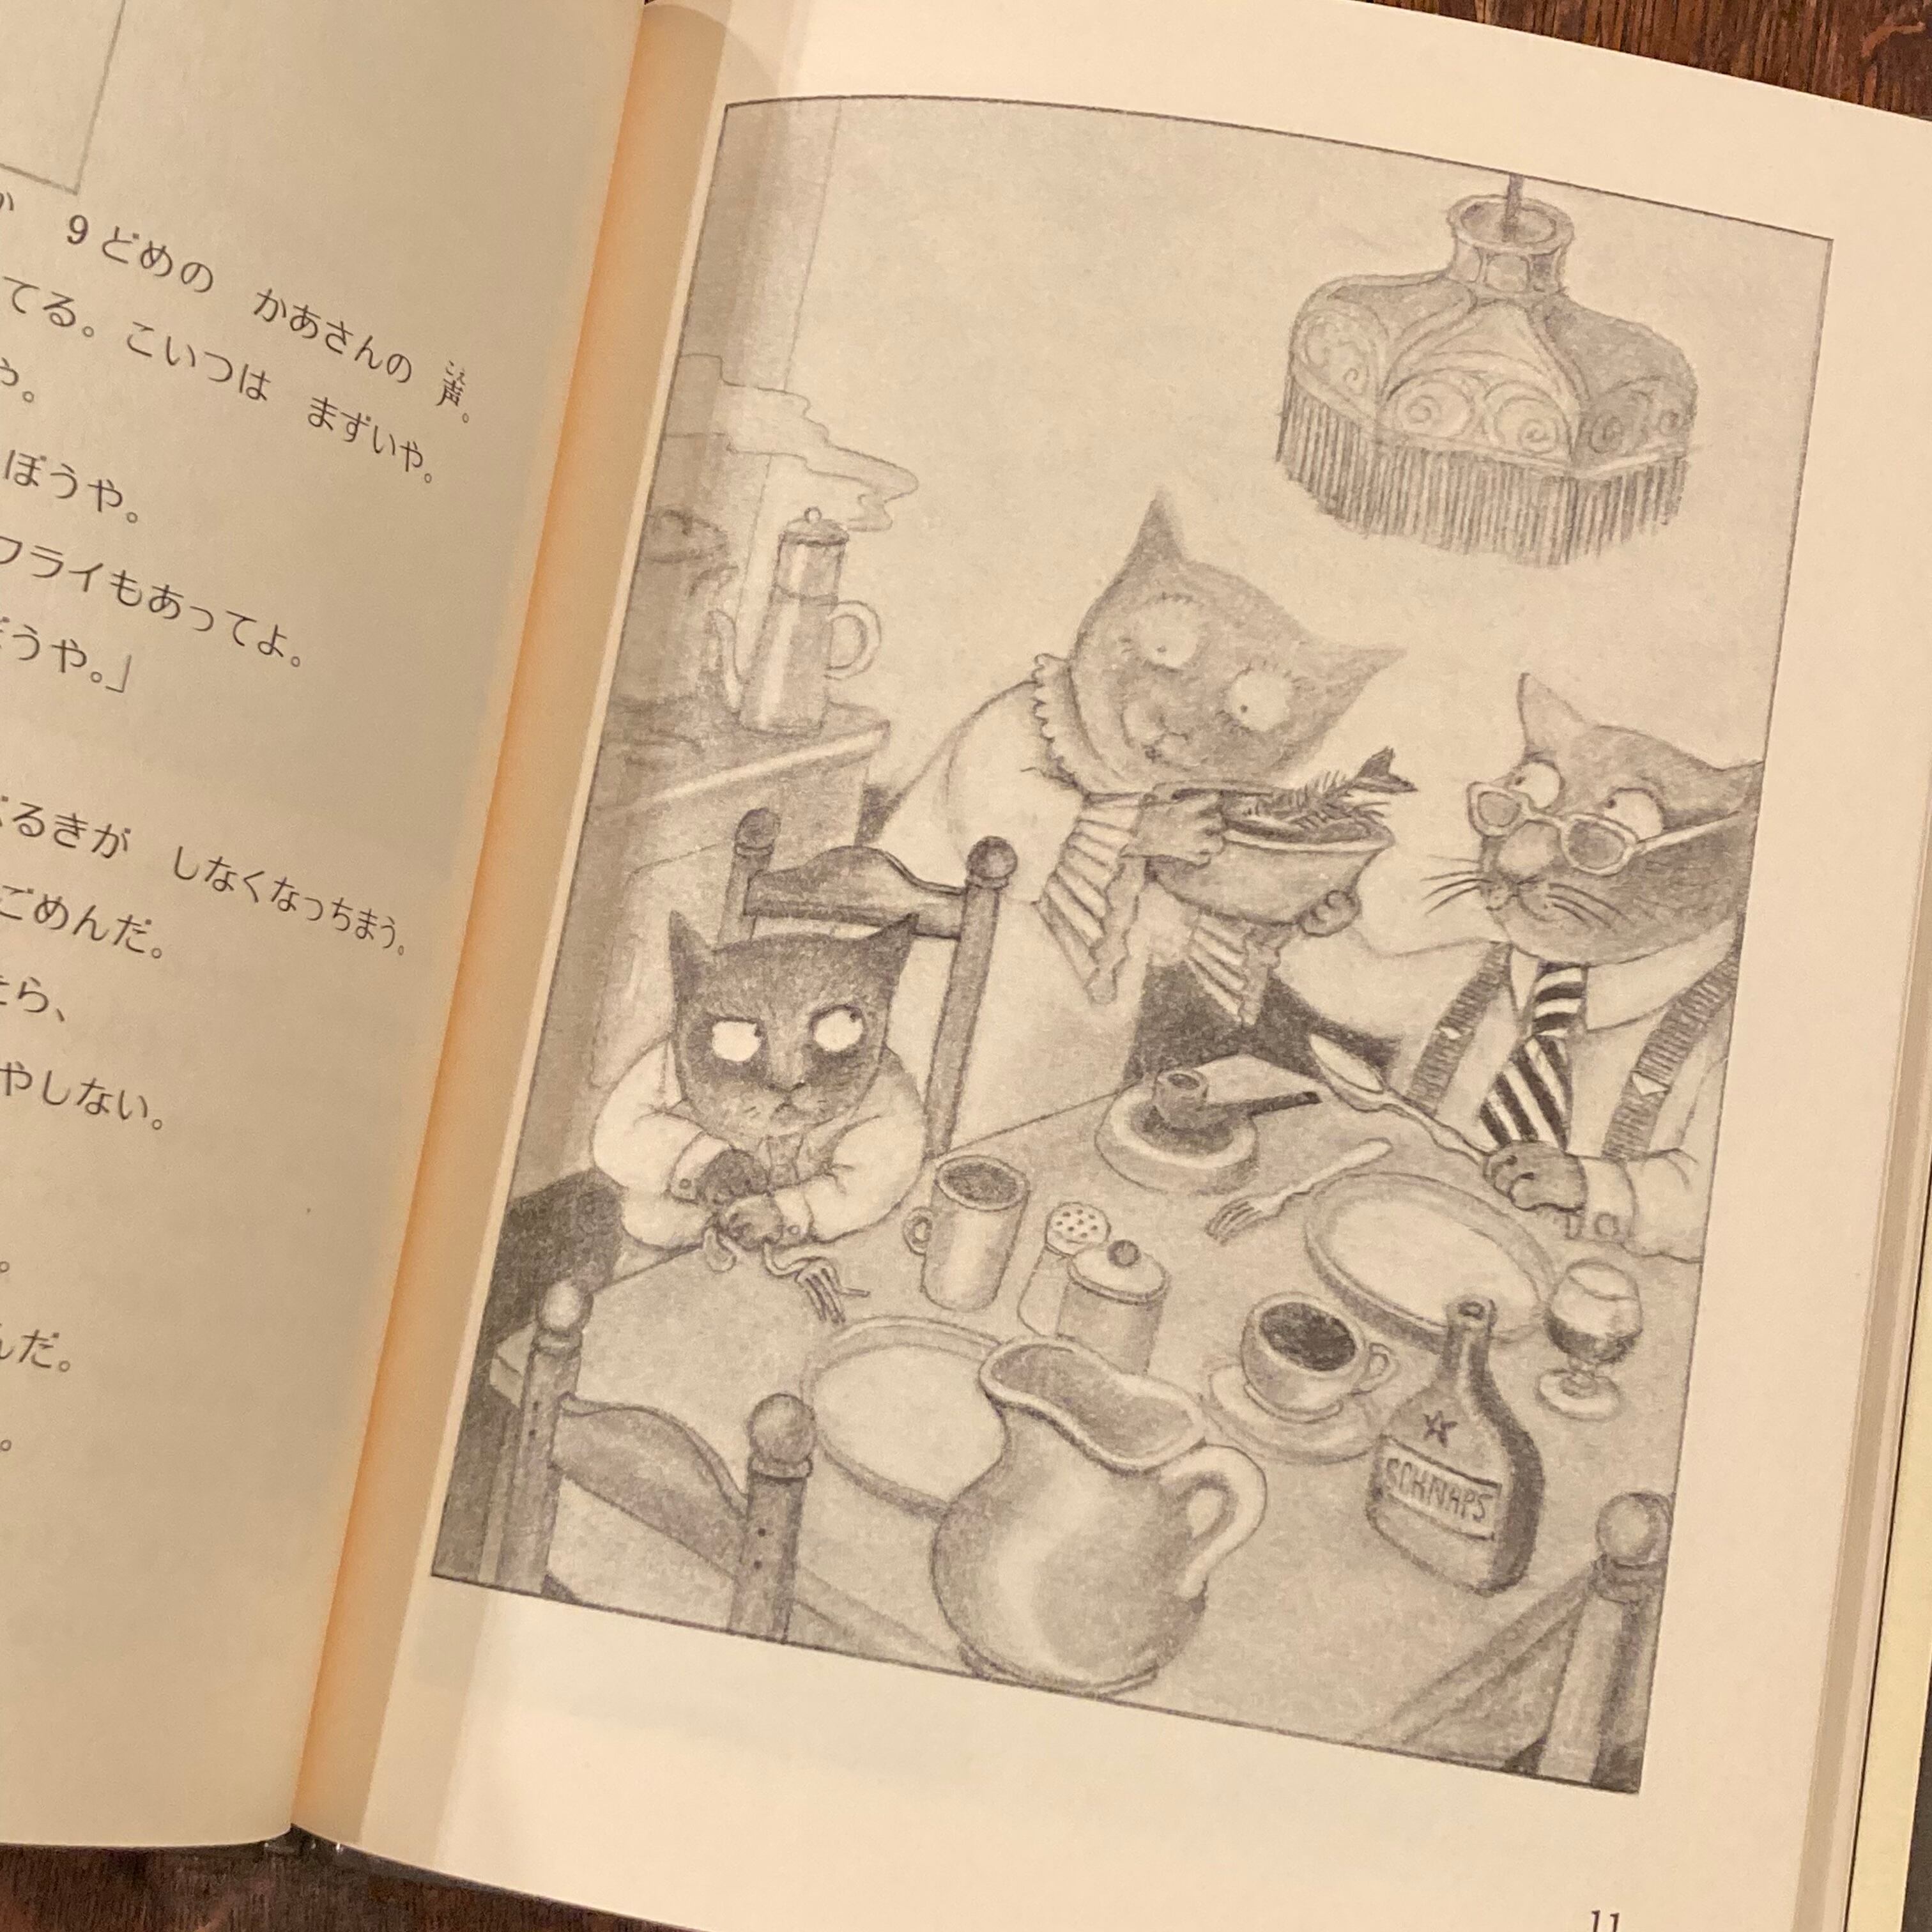 か　９どめの　かあさんの　声。
てる。こいつは　まずいや。
や。
ぼうや。
フライもあってよ。
ぼうや。」
ぶるきが　しなくなっちまう。
ごめんだ。
たら、
やしない。
。
んだ。
。
SCHNAPS
11